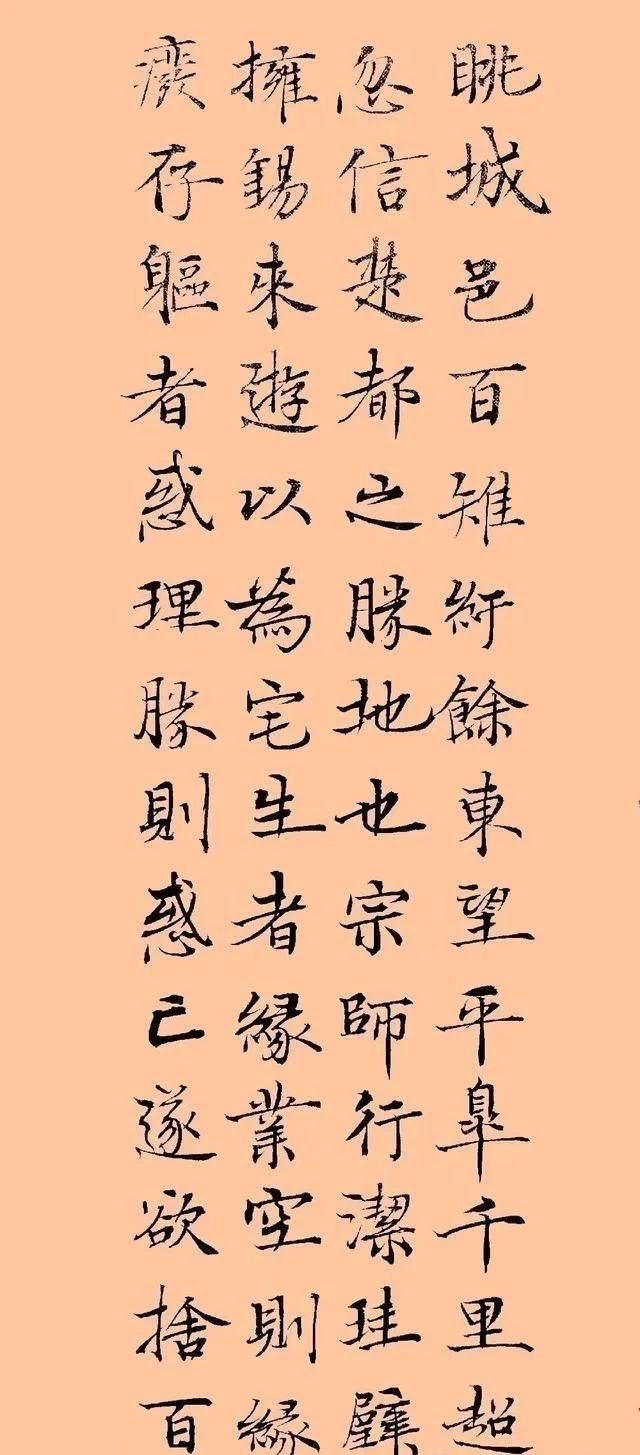 眺城邑百雉紆餘東望平皐千里超
忽信楚都之勝地也宗師行潔珪璧
擁錫來遊以為宅生者緣業空則緣
廢存軀者惑理勝則惑亡遂欲捨百